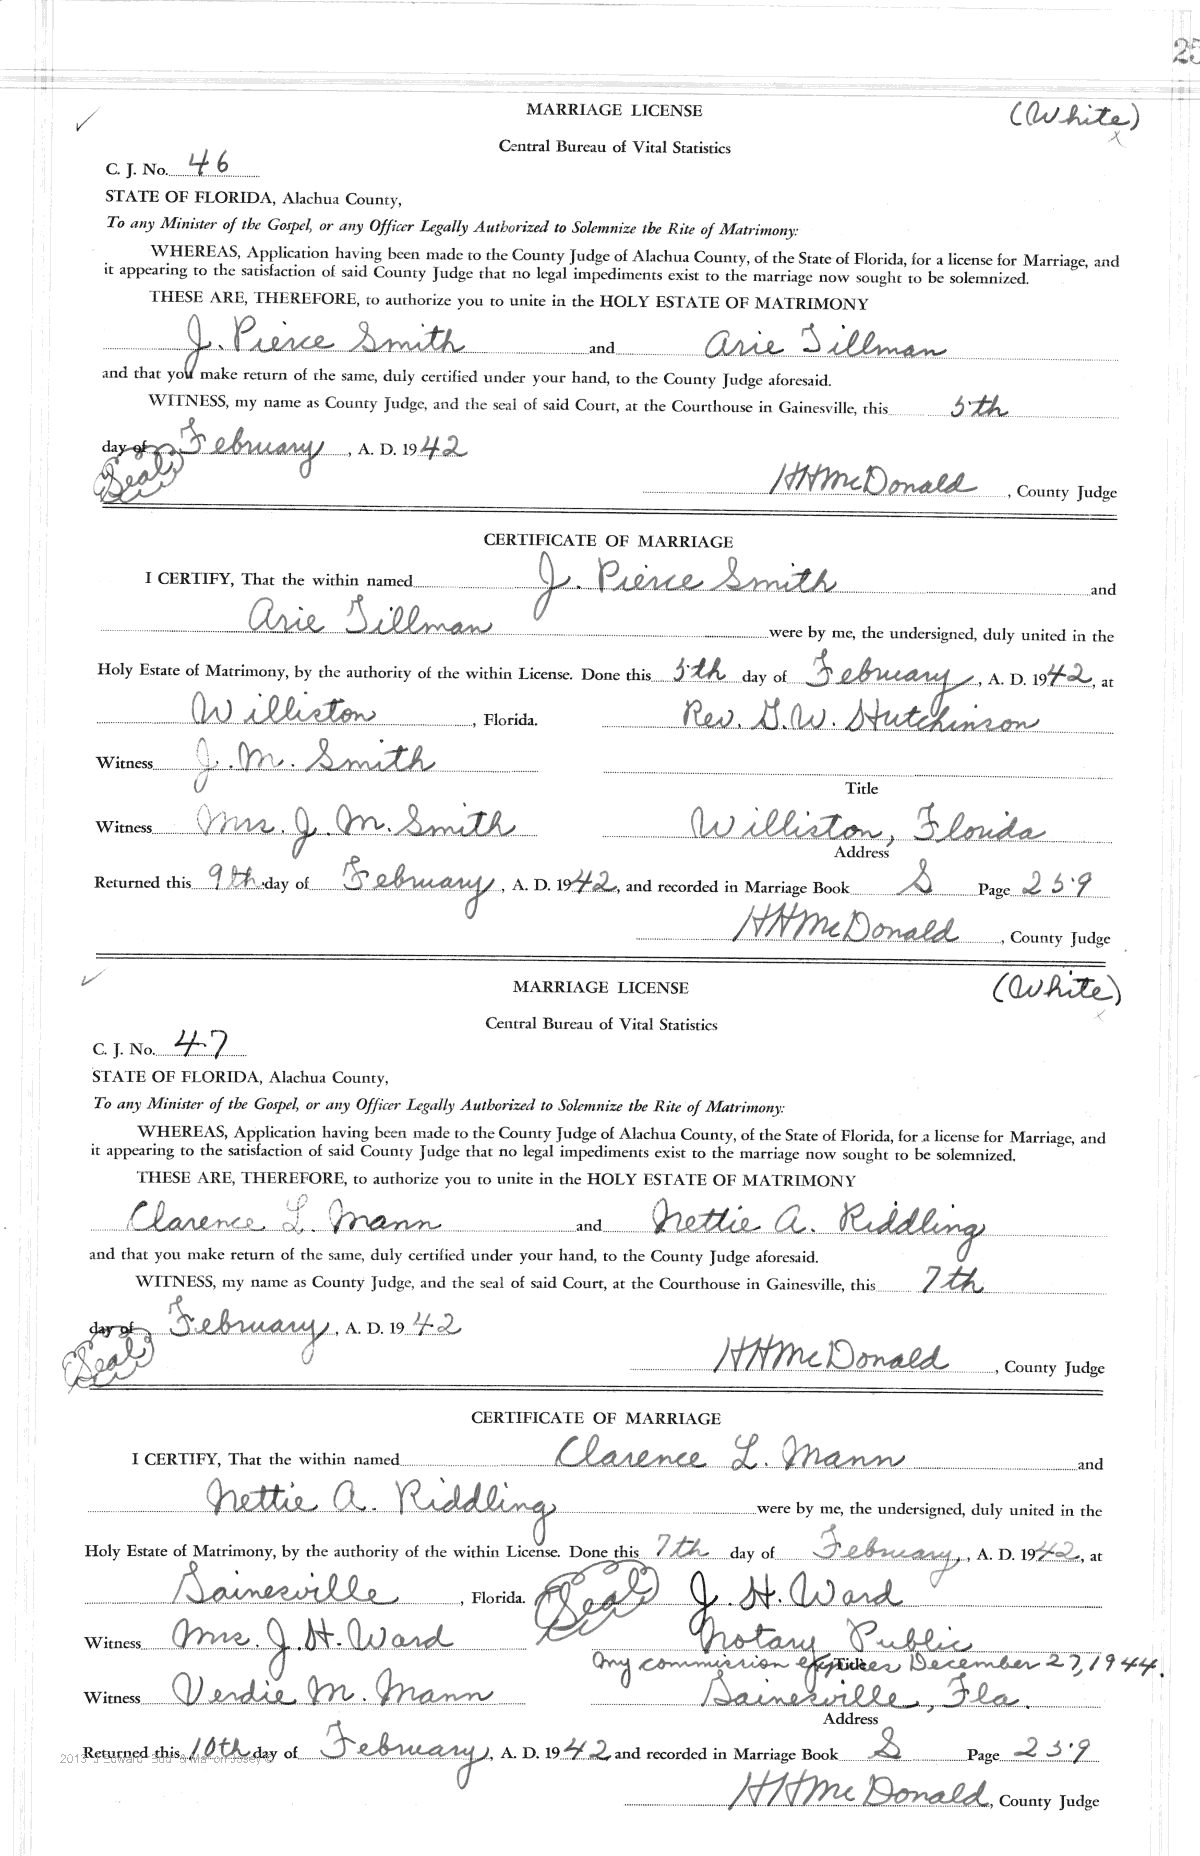 25
MARRIAGE LICENSE (White)
Central Bureau of Vital Statistics
C. J. No. 46
STATE OF FLORIDA, Alachua County,
To any Minister of the Gospel, or any Officer Legally Authorized to Solemnize the Rite of Matrimony:
WHEREAS, Application having been made to the County Judge of Alachua County, of the State of Florida, for a license for Marriage, and
it appearing to the satisfaction of said County Judge that no legal impediments exist to the marriage now sought to be solemnized.
THESE ARE, THEREFORE, to authorize you to unite in the HOLY ESTATE OF MATRIMONY
J. Pierce Smith and Arie Tillman
and that you make return of the same, duly certified under your hand, to the County Judge aforesaid.
WITNESS, my name as County Judge, and the seal of said Court, at the Courthouse in Gainesville, this 5th
day of February, A. D. 1942
(Seal) HHMcDonald, County Judge
CERTIFICATE OF MARRIAGE
I CERTIFY, That the within named J. Pierce Smith and
Arie Tillman were by me, the undersigned, duly united in the
Holy Estate of Matrimony, by the authority of the within License. Done this 5th day of February, A. D. 1942, at
Williston, Florida. Rev. G.W. Hutchinson
Witness J. M. Smith
Title
Witness Mrs. J. M. Smith Williston, Florida
Address
Returned this 9th day of February, A. D. 1942, and recorded in Marriage Book S Page 259
HHMcDonald, County Judge
MARRIAGE LICENSE (White)
Central Bureau of Vital Statistics
C. J. No. 47
STATE OF FLORIDA, Alachua County,
To any Minister of the Gospel, or any Officer Legally Authorized to Solemnize the Rite of Matrimony:
WHEREAS, Application having been made to the County Judge of Alachua County, of the State of Florida, for a license for Marriage, and
it appearing to the satisfaction of said County Judge that no legal impediments exist to the marriage now sought to be solemnized.
THESE ARE, THEREFORE, to authorize you to unite in the HOLY ESTATE OF MATRIMONY
Clarence L. Mann and Nettie A. Riddling
and that you make return of the same, duly certified under your hand, to the County Judge aforesaid.
WITNESS, my name as County Judge, and the seal of said Court, at the Courthouse in Gainesville, this 7th
day of February, A. D. 1942
(Seal) HHMcDonald, County Judge
CERTIFICATE OF MARRIAGE
I CERTIFY, That the within named Clarence L. Mann and
Nettie A. Riddling were by me, the undersigned, duly united in the
Holy Estate of Matrimony, by the authority of the within License. Done this 7th day of February, A. D. 1942, at
Gainesville, Florida. (Seal) J. H. Ward
Witness Mrs. J. H. Ward Notary Public
My commission expires December 27, 1944.
Title
Witness Verdie M. Mann Gainesville, Fla.
Address
Returned this 10th day of February, A. D. 1942 and recorded in Marriage Book S Page 259
HHMcDonald, County Judge